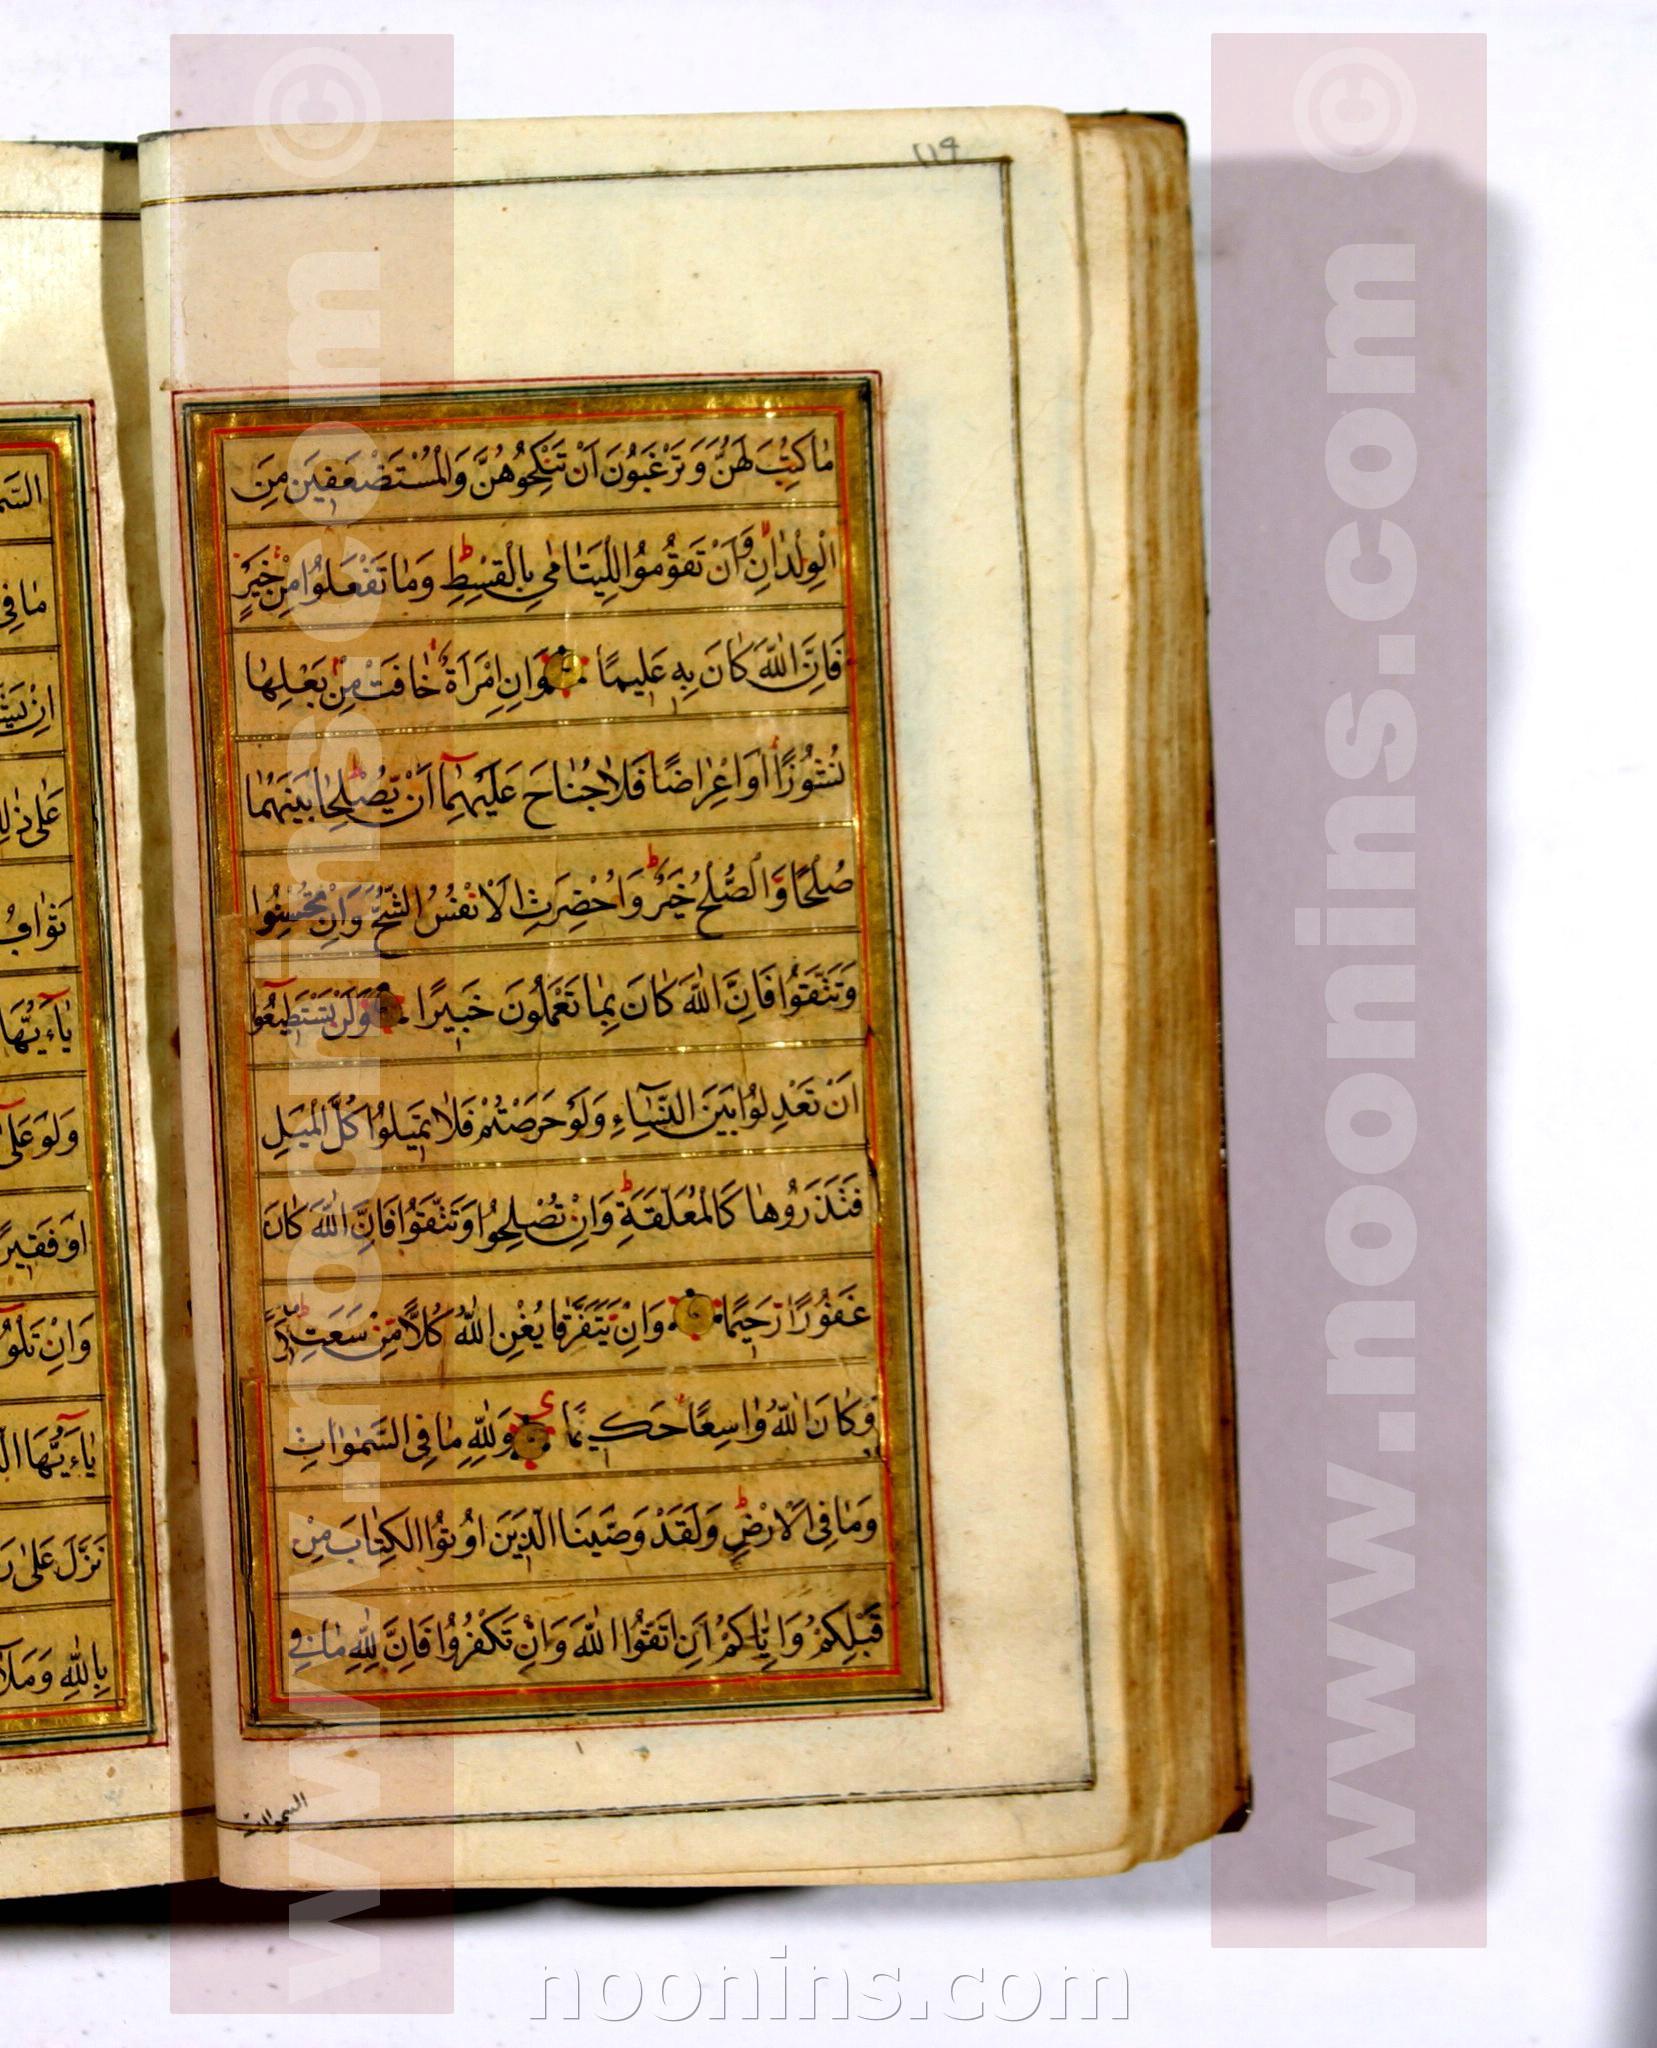 ١١٩
مٰا كُتِبَ لَهُنَّ وَتَرْغَبُونَ اَنْ تَنْكِحُوهُنَّ وَالْمُسْتَضْعَفِينَ مِنَ
الْوِلْدٰانِ وَاَنْ تَقُومُوا لِلْيَتٰامٰى بِالْقِسْطِ وَمٰا تَفْعَلُوا مِنْ خَيْرٍ
فَاِنَّ اللّٰهَ كٰانَ بِهِ عَلِيمًا وَاِنِ امْرَاَةٌ خٰافَتْ مِنْ بَعْلِهٰا
نُشُوزًا اَوْ اِعْرٰاضًا فَلٰا جُنٰاحَ عَلَيْهِمٰٓا اَنْ يُصْلِحٰا بَيْنَهُمٰا
صُلْحًا وَالصُّلْحُ خَيْرٌ وَاُحْضِرَتِ الْاَنْفُسُ الشُّحَّ وَاِنْ تُحْسِنُوا
وَتَتَّقُوا فَاِنَّ اللّٰهَ كٰانَ بِمٰا تَعْمَلُونَ خَبِيرًا وَلَنْ تَسْتَطِيعُٓوا
اَنْ تَعْدِلُوا بَيْنَ النِّسٰٓاءِ وَلَوْ حَرَصْتُمْ فَلٰا تَمِيلُوا كُلَّ الْمَيْلِ
فَتَذَرُوهٰا كَالْمُعَلَّقَةِ وَاِنْ تُصْلِحُوا وَتَتَّقُوا فَاِنَّ اللّٰهَ كٰانَ
غَفُورًا رَحِيمًا وَاِنْ يَتَفَرَّقٰا يُغْنِ اللّٰهُ كُلًّا مِنْ سَعَتِهِ
وَكٰانَ اللّٰهُ وٰاسِعًا حَكِيمًا وَلِلّٰهِ مٰا فِى السَّمٰوٰاتِ
وَمٰا فِى الْاَرْضِ وَلَقَدْ وَصَّيْنَا الَّذِينَ اُوتُوا الْكِتٰابَ مِنْ
قَبْلِكُمْ وَاِيّٰاكُمْ اَنِ اتَّقُوا اللّٰهَ وَاِنْ تَكْفُرُوا فَاِنَّ لِلّٰهِ مٰا فِى
السموات
مٰا فِى
عَلٰى ذٰلِكَ
ثَوٰابُ
يٰٓاَيُّهَا
وَلَوْ عَلٰٓى
اَوْ فَقِيرًا
وَاِنْ تَلْوُٓ
يٰٓاَيُّهَا الَّ
نَزَّلَ عَلٰى رَ
بِاللّٰهِ وَمَلٰٓ
© www.noonins.com
© www.noonins.com
noonins.com